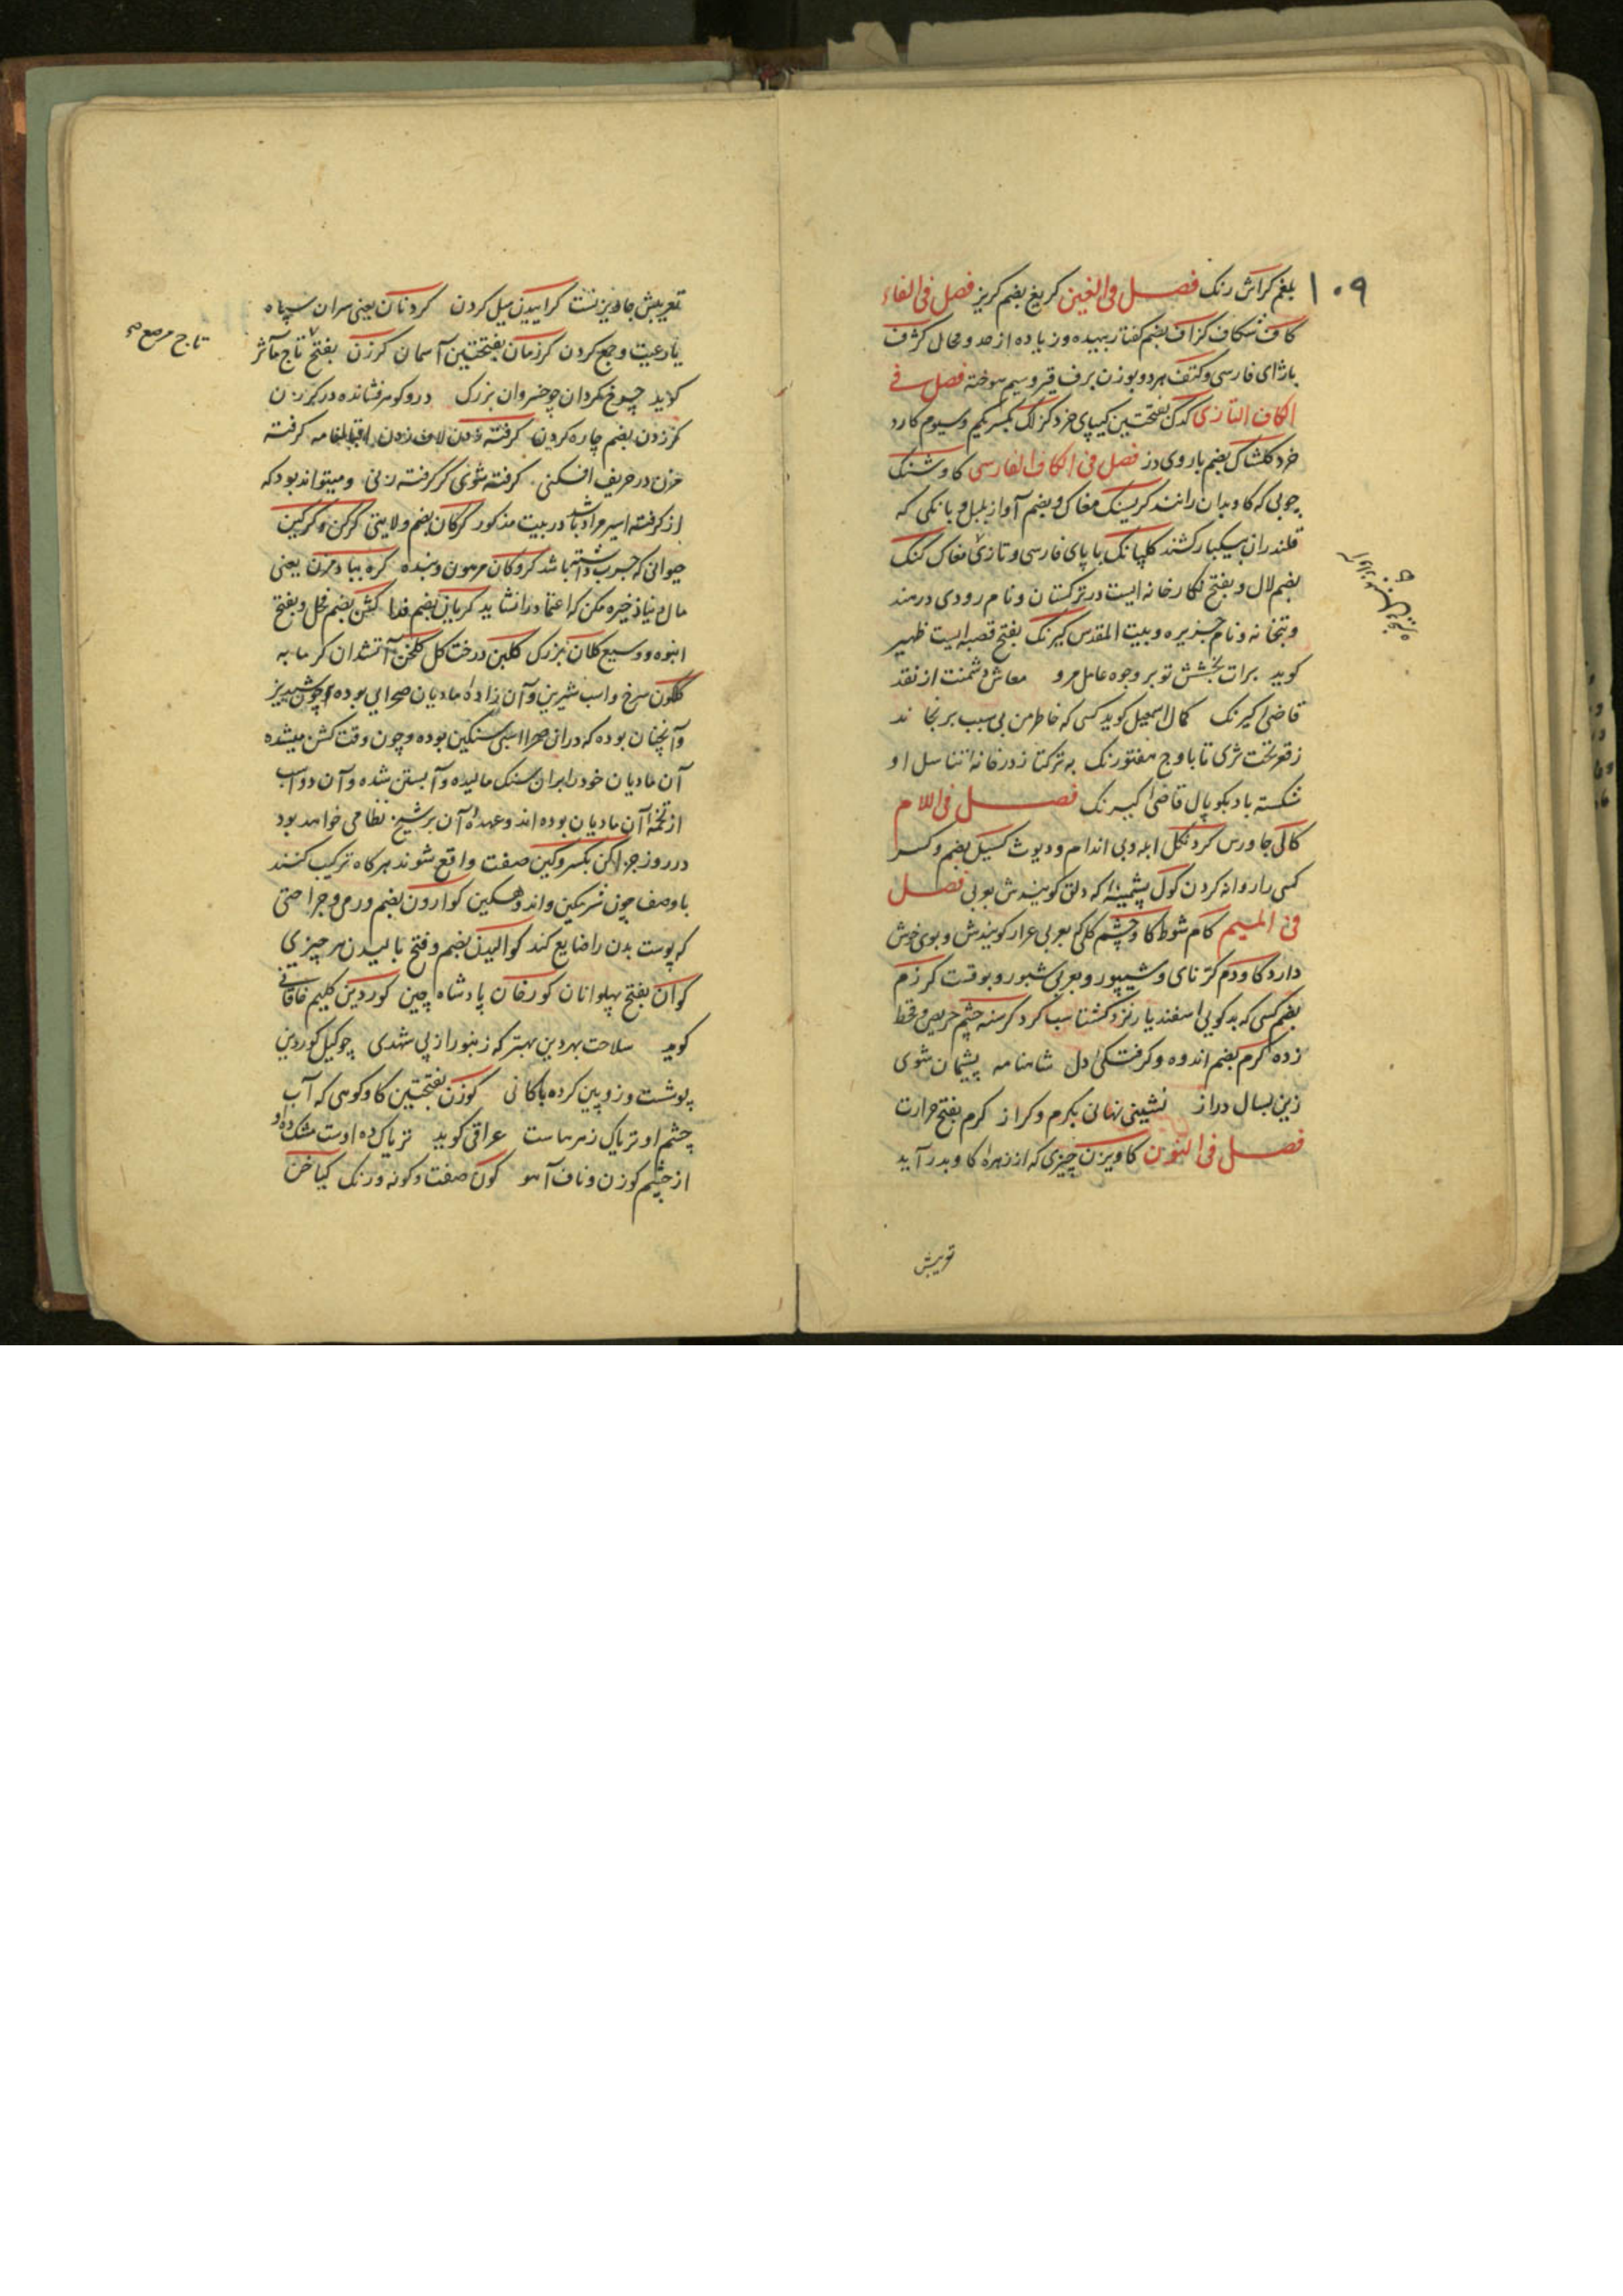 ۱۰۹
بلغم کراش رنک فصل فی الغین کریغ بضم کریز فصل فی الفاء
کاف شکاف کزاف بضم کفتار بیهده و زیاده از حد و محال کژف
با ژای فارسی و کتف هر دو بوزن برف قیر و سیم سوخته فصل فی
الکاف التازی کدک بفتحتین کیپای خرد کزلک بکسر یکم و سیوم کارد
خرد کلشاک بضم باروی دز فصل فی الکاف الفارسی کاوشنک
چوبی که کاو بدان رانند کریسنک مغاک و بضم آواز بلبل و بانکی که
قلندران بیکبار کشند کلپانک با پای فارسی و تازی مغاک کنک
بضم لال و بفتح نکارخانه ایست در ترکستان و نام رودی در هند
و بتخانه و نام جزیره و بیت المقدس کیرنک بفتح قصبه ایست ظهیر
کوید برات بخشش تو بر وجوه عامل مرو معاش دشمنت از نقد
قاضی کیرنک کمال اسمعیل کوید کسی که خاطر من بی سبب برنجاند
ز قعر تخت ثری تا باوج هفتورنک به ترکتاز در خانه تناسل او
شکسته باد بکوپال قاضی کیرنک فصل فی اللام
کال جاورس کردنکل ابله و بی اندام و دیوث کسیل بضم و کسر
کسی را روانه کردن کول پشمینه که دلق کویندش بعربی فصل
فی المیم کام شوط کاوچشم کلی که بعربی عرار کویندش و بوی خوش
دارد کاودم کرنای و شیپور و بعربی شبور و بوقت کرزم
بضم کسی که بدکویی اسفندیار نزد کشتاسب کرد کرسنه چشم حریص و قحط
زده کرم بضم اندوه و کرفتکی دل شاهنامه پشیمان شوی
زین بسال دراز نشینی نهانی بکرم و کراز کرم بفتح حرارت
فصل فی النون کاویزن چیزی که از زهره کاو بدر آید
تعریبش
تعریبش جاویزنست کراییدن میل کردن کردنان یعنی سران سپاه
یا رعیت و جمع کردن کرزمان بفتحتین آسمان کرزن بفتح تاج مآثر
تاج مرصع صح
کوید چو خسروان بزرک در و کوهر فشانده در کرزن
کرزدن بضم چاره کردن کرفته زدن لاف زدن اقبالنامه کرفته
مزن در حریف افکنی کرفته شوی کر کرفته زنی و میتواند بود که
از کرفته اسیر مراد باشد در بیت مذکور کرکان بضم ولایتی کرکن و کرکین
حیوانی که جرب داشته باشد کروکان مرهون و بنده کره بباد مزن یعنی
مال دنیا ذخیره مکن که اعتماد را نشاید کریان بضم فدا کشن بضم فحل و بفتح
انبوه و وسیع کلان بزرک کلبن درخت کل کلخن آتشدان کرمابه
کلکون سرخ و اسب شیرین و آن زاده مادیان صحرایی بوده چون شبدیز
و آنچنان بوده که دران صحرا اسبی سنکین بوده و چون وقت کشن میشده
آن مادیان خود را بران سنک مالیده و آبستن شده و آن دو اسب
از تخمه آن مادیان بوده اند و عهده آن بر شیخ نظامی خواهد بود
در روز جزا کن بکسر و کین صفت واقع شوند هر کاه ترکیب کنند
با وصف چون شرمکین و اندوهکین کوارون بضم ورمی و جراحتی
که پوست بدن را ضایع کند کوالیدن بضم و فتح بالیدن هر چیزی
کوان بفتح پهلوانان کورخان پادشاه چین کوردین کلیم خاقانی
کوید سلاحت بهر دین بهتر که زنبور از پی شهدی چو کیل کوردین
پوشست و زوپین کرده باکانی کوزن بفتحتین کاو کوهی که آب
چشم او تریاک زهرهاست عراقی کوید تریاک ده اوست مشک ده او
از چشم کوزن و ناف آهو کون صفت و کونه و رنک کیاخن